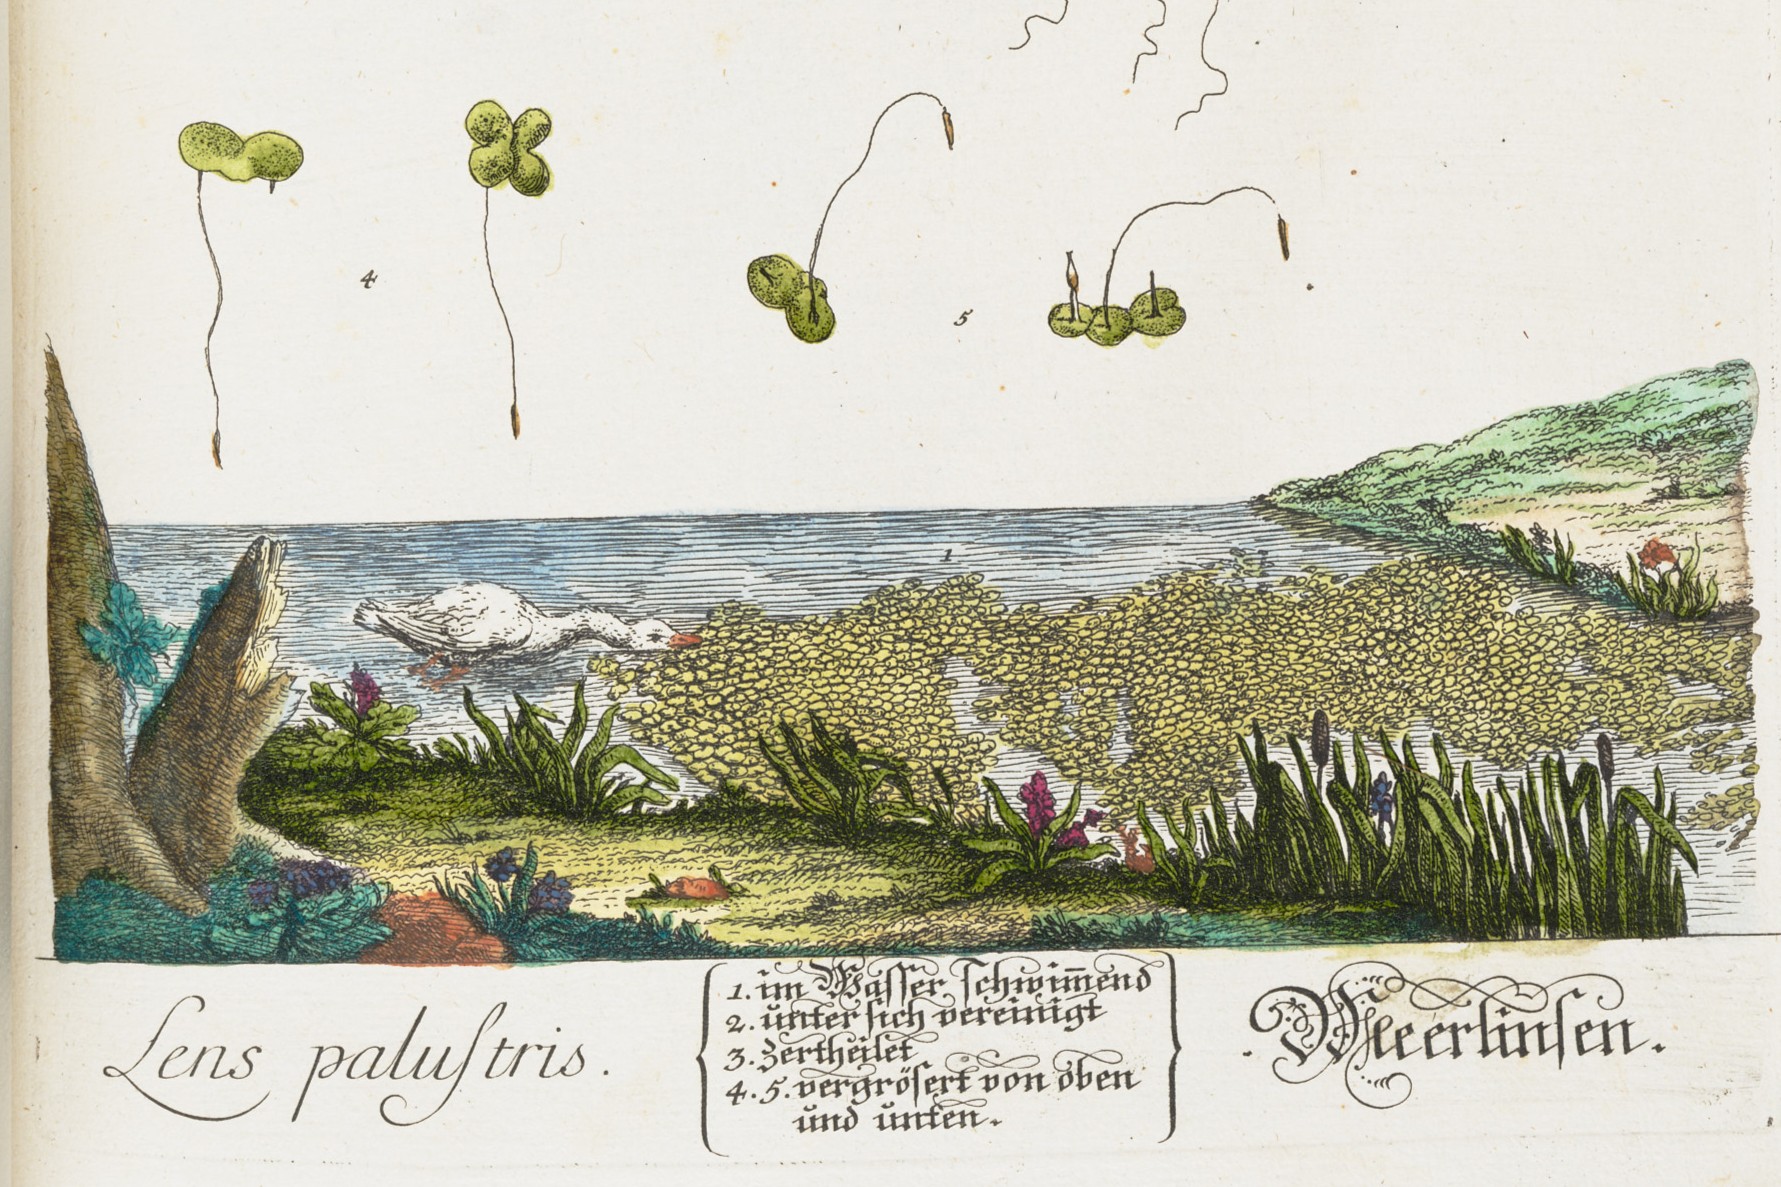 4
5
1
Lens paluſtris.
1. im Waſſer ſchwim̅end
2. unter ſich vereinigt
3. Zertheilet
4. 5. vergröſert von oben
und unten.
Meerlinſen.